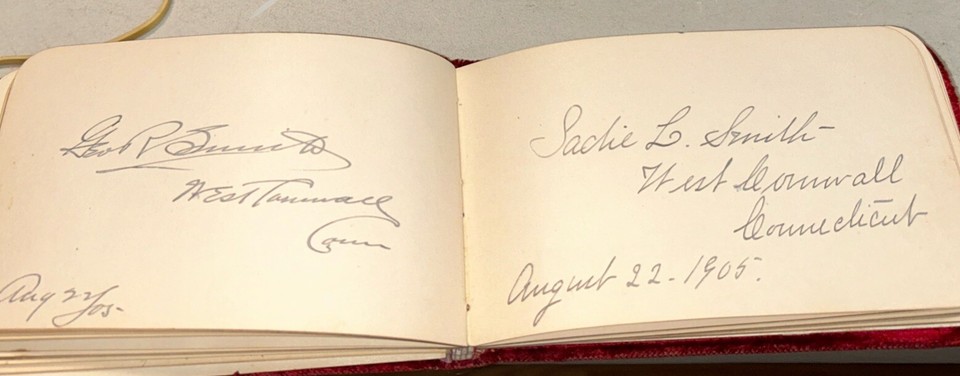 Geo R Smith
West Cornwall
Conn
Aug 22/05-
Sadie L. Smith-
West Cornwall
Connecticut
August 22-1905.